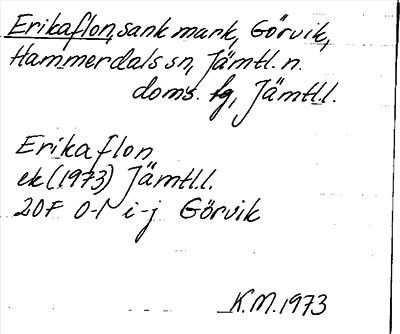 Erikaflon, sank mark, Görvik,
Hammerdals sn, Jämtl. n.
doms. fg, Jämtl.l.
Erikaflon
ek (1973) Jämtl.l.
20F 0-1 i-j Görvik
K.M. 1973